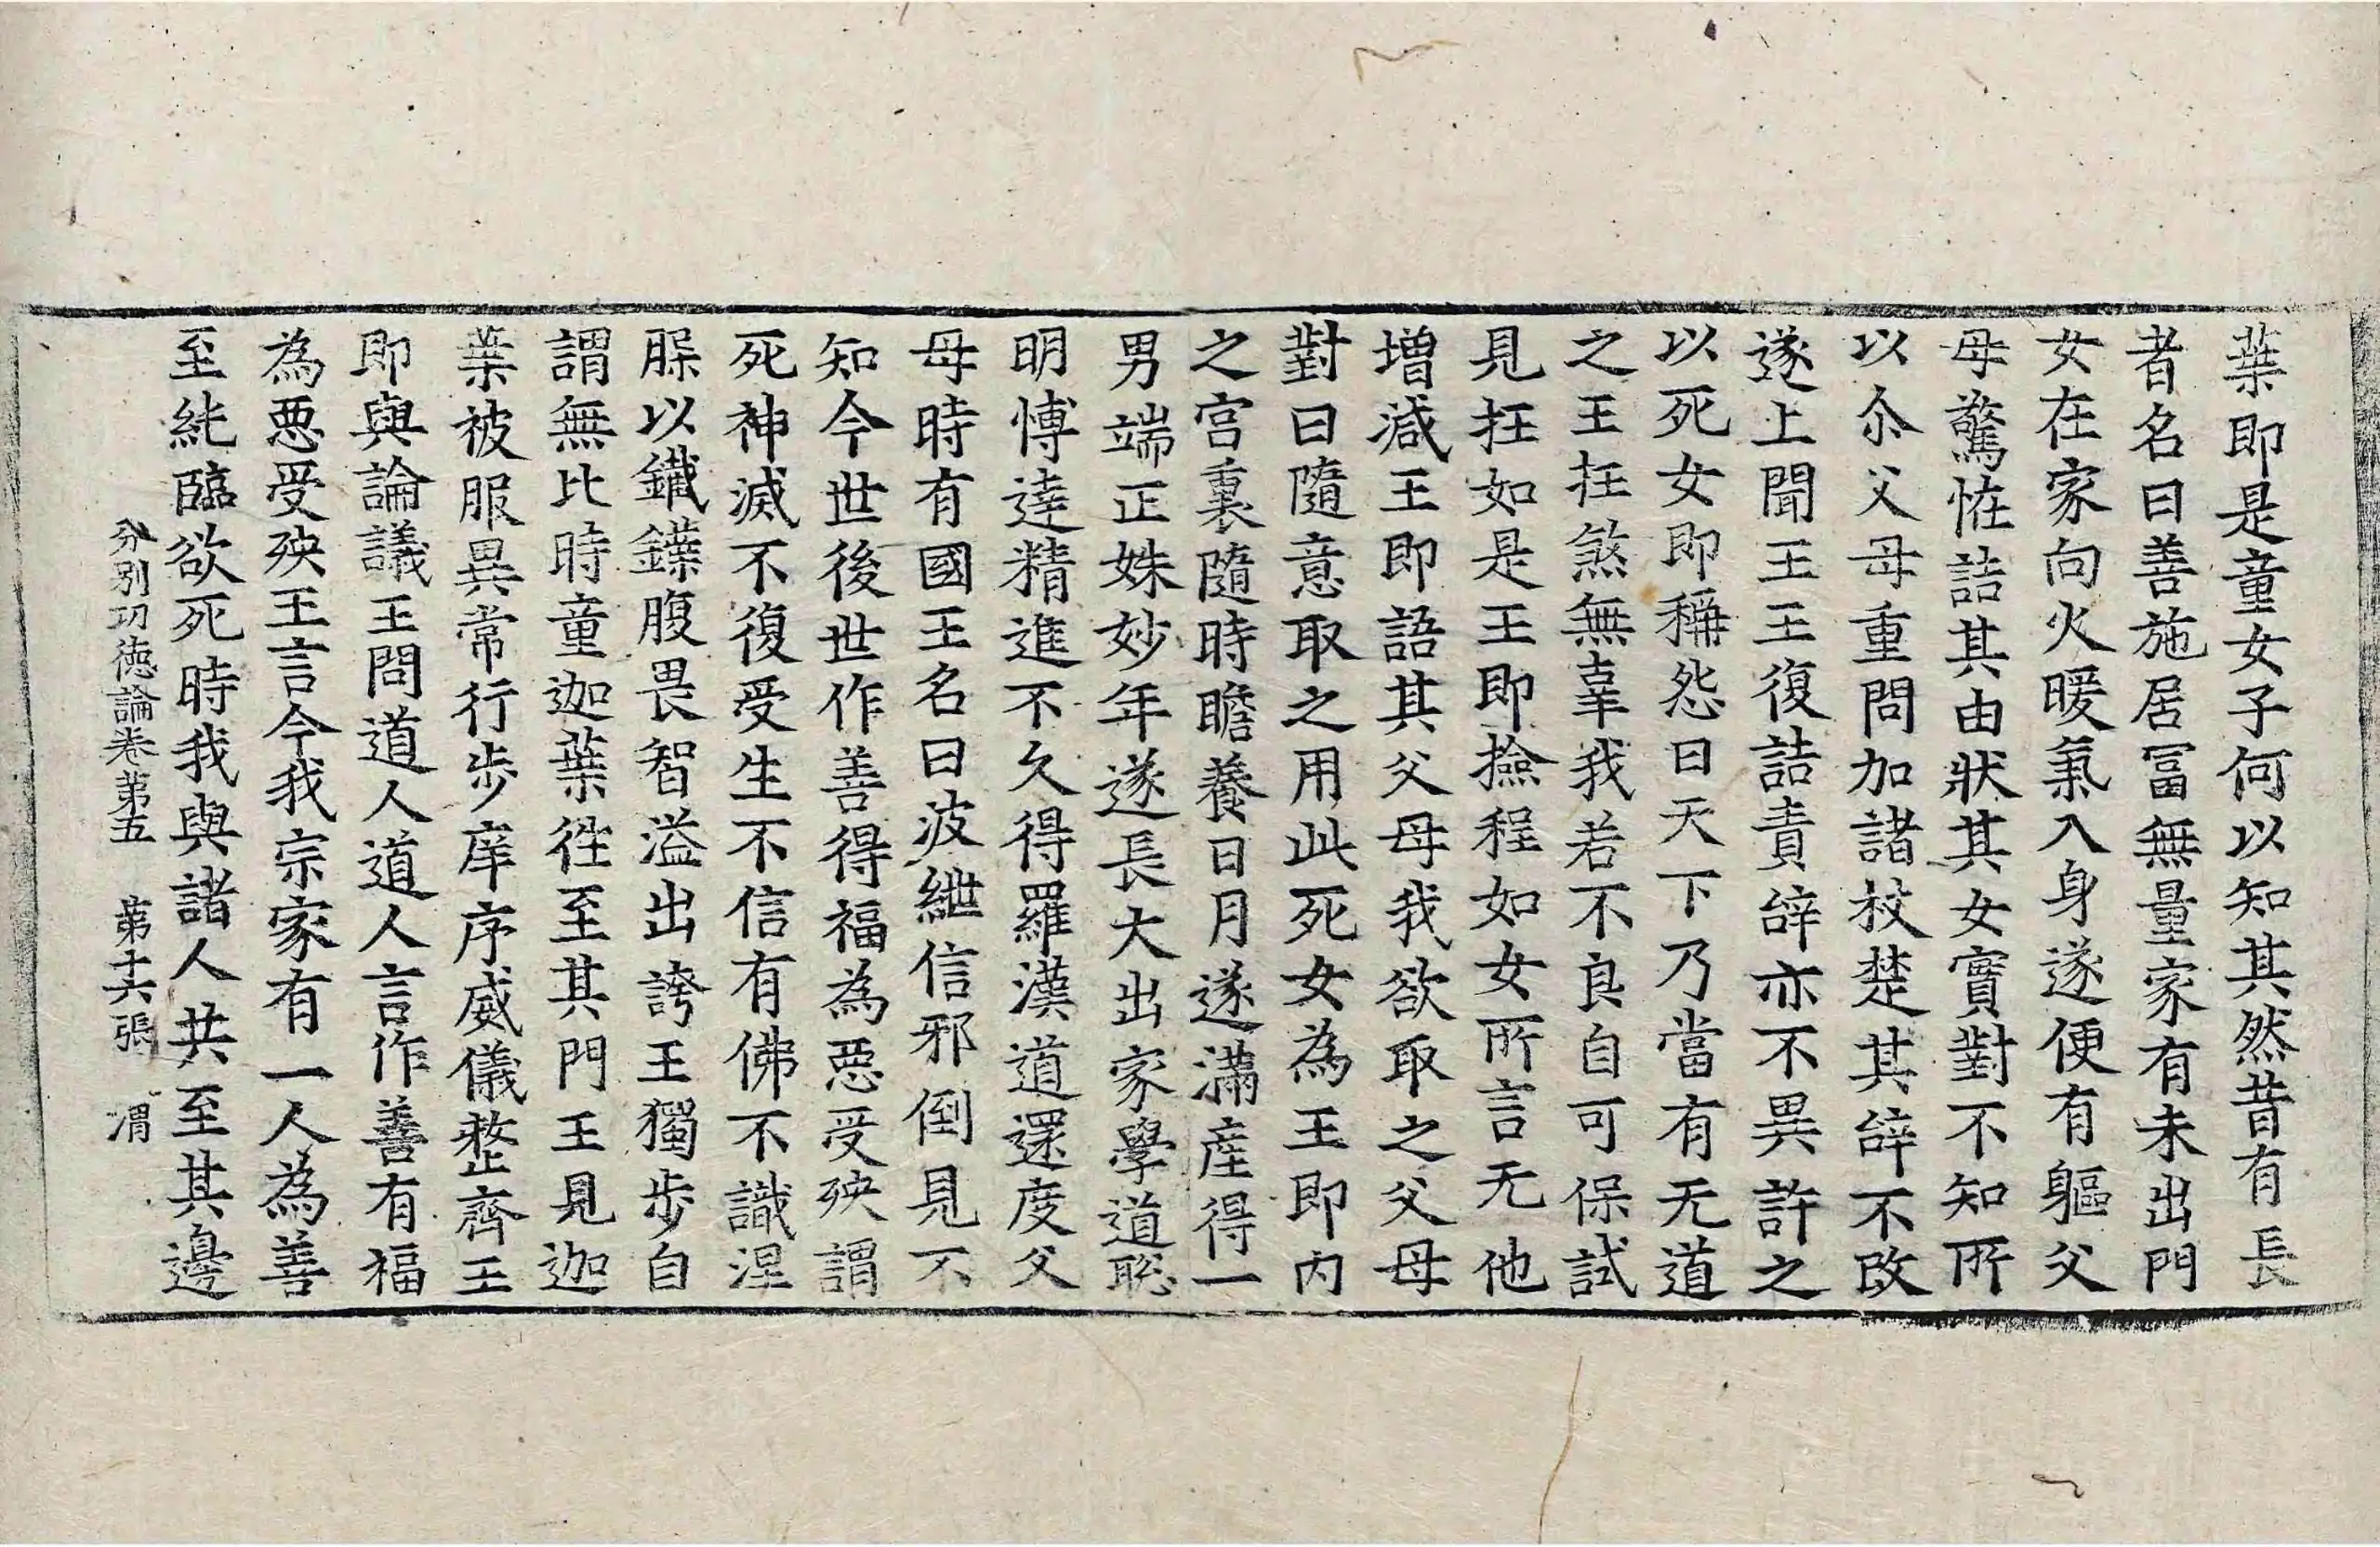 葉即是童女子何以知其然昔有長
者名曰善施居冨無量家有未出門
女在家向火暖氣入身遂便有軀父
母驚恠詰其由狀其女實對不知所
以尒父母重問加諸杖楚其辝不改
遂上聞王王復詰責辝亦不異許之
以死女即稱怨曰天下乃當有无道
之王抂煞無辜我若不良自可保試
見抂如是王即撿程如女所言无他
增減王即語其父母我欲取之父母
對曰隨意取之用此死女為王即內
之宮裏隨時瞻養日月遂滿產得一
男端正姝妙年遂長大出家學道聡
明愽達精進不久得羅漢道還度父
母時有國王名曰波紲信邪倒見不
知今世後世作善得福為惡受殃謂
死神滅不復受生不信有佛不識涅
脲以鐵鍱腹畏智溢出誇王獨步自
謂無比時童迦葉徃至其門王見迦
葉被服異常行步庠序威儀整齊王
即與論議王問道人道人言作善有福
為惡受殃王言今我宗家有一人為善
至純臨欲死時我與諸人共至其邊
分別功德論卷第五　第十六張　渭